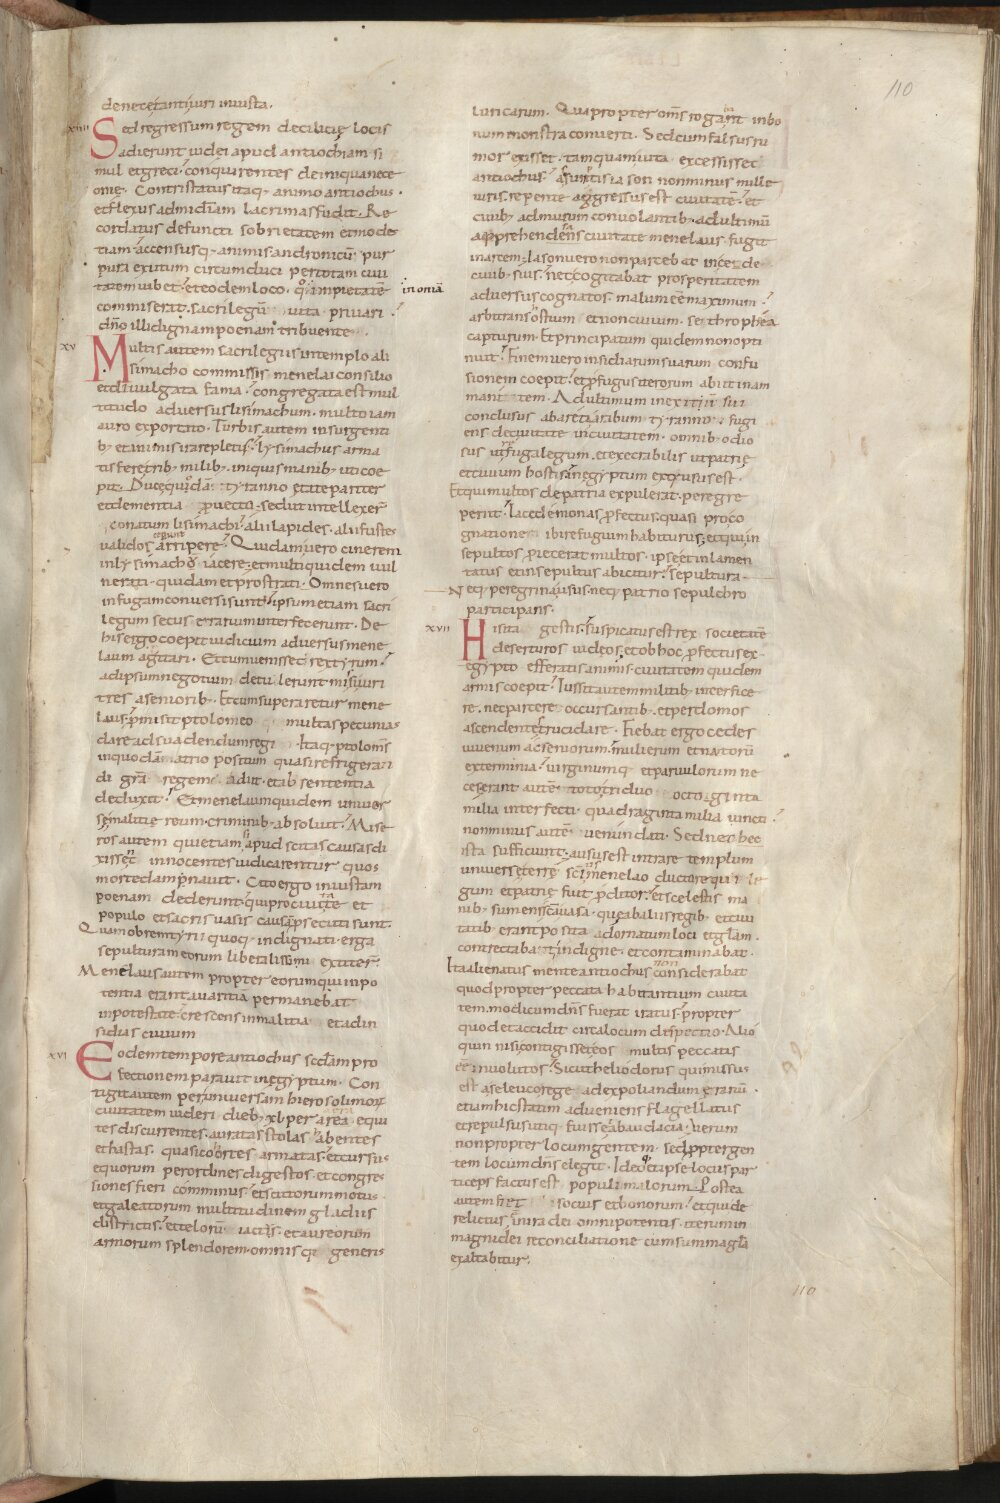 110
de nece&antii uiri iniusta.
xiiii Sed regressum regem de ciliciȩ locis
adierunt iudei apud antiochiam si
mul et greci. conquirentes de iniqua nece
oniȩ. Contristatus itaq; animo antiochus.
et flexus ad misericordiam lacrimas fudit. Re
cordatus defuncti sobrietatem et mode
tiam. accensusq; animis andronicum pur
pura exutum circumduci per totam ciui
tatem iubet. et eodem loco. quo impietatem in oniā
commiserat. sacrilegū uita priuari.
dn̄o illi dignam poenam tribuente.
xv Multis autem sacrilegiis in templo a li
simacho commissis menelai consilio
et diuulgata fama. congregata est mul
titudo aduersus lisimachum. multo iam
auro exportato. Turbis autem insurgenti
b; et animis ira repletis. lysimachus arma
tis fere trib; milib; iniquis manib; uti coe
pit. Duce quodā tyranno ȩtate pariter
et dementia prouectu. sed ut intellexer̄
conatum lisimachi. alii lapides. alii fustes
ualidos arripere. Quidam uero cinerem
in lysimachū iacere. et multi quidem uul
nerati. quidam et prostrati. Omnes uero
in fugam conuersi sunt. ipsum etiam sacri
legum secus erarium interfecerunt. De
his ergo coepit iudicium aduersus mene
laum agitari. Et cum uenisset rex tyrum.
ad ipsum negotium detulerunt missi uiri
tres a seniorib; Et cum superaretur mene
laus. p̄misit ptolomeo multas pecunias
dare ad suadendum regi Itaq; ptolomeus
in quodā atrio positum quasi refrigeran
di gr̄a regem adiit. et ab sententia
deduxit. Et menelaum quidem uniuer
sȩ malitiȩ reum. criminib; absoluit. Mise
ros autem qui etiam si apud scitas causā di
xissent innocentes iudicarentur quos
morte damp̄nauit. Cito ergo iniustam
poenam dederunt. qui pro ciuitate et
populo et sacris uasis causā p̄secuti sunt.
Quam ob rem tyrii quoq; indignati. erga
sepulturam eorum liberalissimi extiter̄.
Menelaus autem propter eorum qui in po
tentia erant auaritiā permanebat
in potestate. crescens in malitia et ad in
sidias ciuium
xvi Eodem tempore antiochus sc̄dam pro
fectionem parauit in ȩgyptum. Con
tigit autem per uniuersam hierosolimorū
ciuitatem uideri dieb; xl. per aera equi
tes discurrentes. auratas stolas abentes
et hastas. quasi cohortes armatas. et cursus
equorum per ordines digestos. et congres
siones fieri comminus et scutorum motus.
et galeatorum multitudinem gladiis
districtis. et telorū iactus. et aureorum
armorum splendorem. omnisq; generis
luricarum. Quapropter om̄s rogabant in bo
num monstra conuerti. Sed cum falsus ru
mor exisset. tamquam uita excessisset
antiochus. assumtis iason non minus mille
uiris. repente aggressus est ciuitatē. et
ciuib; ad murum conuolantib; ad ultimū
apprehendens ciuitate menelaus fugit
in artem. Iason uero non parcebat in cede
ciuib; suis. nec cogitabat prosperitatem
aduersus cognatos. malum eē maximum.
arbitrans ostium et non ciuium. se throphea
capturum. Et principatum quidem non opti
nuit. Finem uero insidiarum suarum confu
sionem coepit. et profugus iterorum abiit in am
maniten. Ad ultimum in exitiū sui
conclusus ab areta aribum tyranno. fugi
ens de ciuitate in ciuitatem. omnib; odio
sus ut refuga legum. et execrabilis ut patriȩ
et ciuium hostis. in egyptum extrusus est.
Et qui multos de patria expulerat. peregre
periit. Iacedemonas profectus. quasi pro co
gnatione ibi refugium habiturus. et qui in
sepultos proiecerat multos. ipse et inlamen
tatus et insepultus abicitur. sepultura.
Neq; peregrina usus. neq; patrio sepulchro
participans.
xvii His ita gestis. suspicatus est rex societatē
deserturos iudeos. et ob hoc profectus ex
egypto efferatis animis. ciuitatem quidem
armis coepit. Iussit autem militib; interfice
re. nec parcere occursantib; et per domos
ascendentes trucidare. Fiebat ergo cedes
iuuenum ac seniorum. mulierum et natorū
exterminia. uirginumq; et paruulorum ne
ces. erant autē toto triduo octoginta
milia interfecti. quadraginta milia uincti.
non minus autē uenundati. Sed nec hec
ista sufficiunt. ausus est intrare templum
uniuersȩ terrȩ sc̄m menelao ductore qui le
gum et patriȩ fuit proditor. et scelestis ma
nib; sumens scā uasa. quȩ ab aliis regib; et ciui
tatib; erant posita ad ornatum loci et glām.
contrectabat indigne. et contaminabat.
Ita alienatus mente antiochus non considerabat
quod propter peccata habitantium ciuita
tem. modicum dn̄s fuerat iratus. propter
quod et accidit circa locum despectio. Alio
quin nisi contigisset eos multis peccatis
eē inuolutos. Sicut heliodorus qui missus
est a seleuco rege ad expoliandum erarium.
etiam hic statim adueniens flagellatus
et repulsus utiq; fuisset ab audacia. Uerum
non propter locum gentem. sed propter gen
tem locum dn̄s elegit. Ideoq; et ipse locus par
ticeps factus est populi malorum. Postea
autem fiet socius et bonorum. et qui de
relictus in ira dei omnipotentis. iterum in
magni dei reconciliatione cum summa glā
exaltabitur.
110